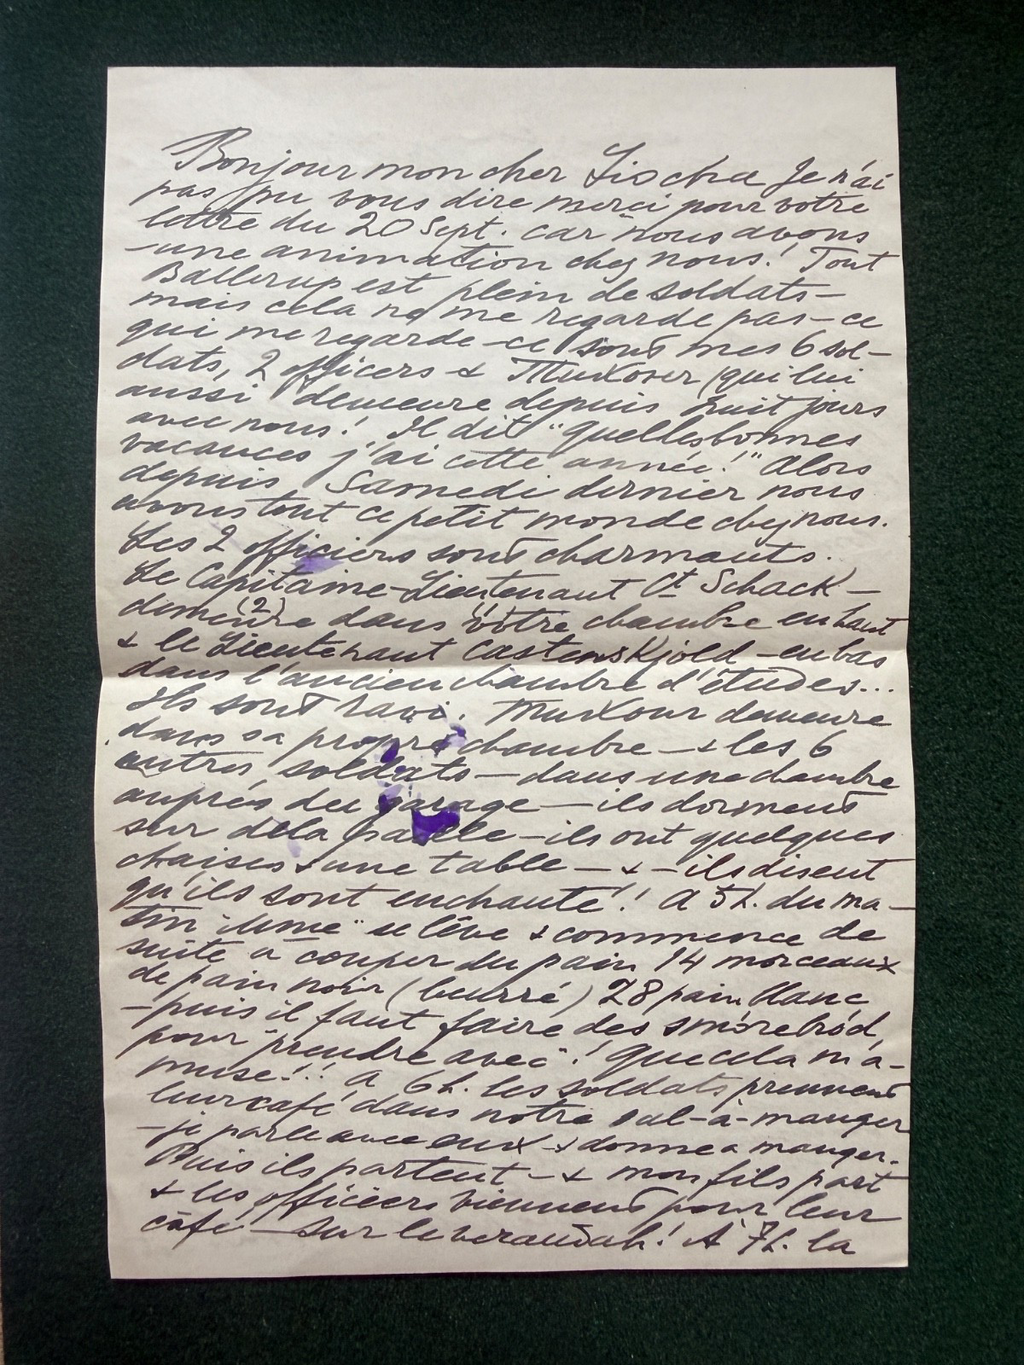 Bonjour mon cher Liocha Je n'ai
pas pu vous dire merci pour votre
lettre du 20 Sept. car nous avons
une animation chez nous! Tout
Ballerup est plein de soldats—
mais cela ne me regarde pas—ce
qui me regarde—ce sont mes 6 sol-
dats, 2 officers & (qui lui
aussi demeure depuis huit jours
avec nous! Il dit "quelles bonnes
vacances j'ai cette année!" Alors
depuis Samedi dernier nous
avons tout ce petit monde chez nous.
Les 2 officiers sont charmants.
Le Capitaine-Lieutenant Ct Schack—
demeure (2) dans "votre chambre en haut
& le Lieutenant Castenskjold—en bas
dans l'ancien chambre d'études...
Ils sont ravi. demeure
dans sa propre chambre—& les 6
autres soldats—dans une chambre
auprès du garage—ils dorment
sur de la paille—ils ont quelques
chaises & une table—&—ils disent
qu'ils sont enchanté! A 5h. du ma-
tin se lève & commence de
suite à couper du pain 14 morceaux
de pain noir (beurré) 28 pain blanc
—puis il faut faire des smörebröd,
pour "prendre avec"! Que cela m'a-
muse!!! A 6h. les soldats prennent
leur café dans notre sal-à-manger
—je parle avec eux—& donne a manger.
Puis ils partent—& mon fils part
& les officiers viennent pour leur
café—sur le verandah! À 7h. la